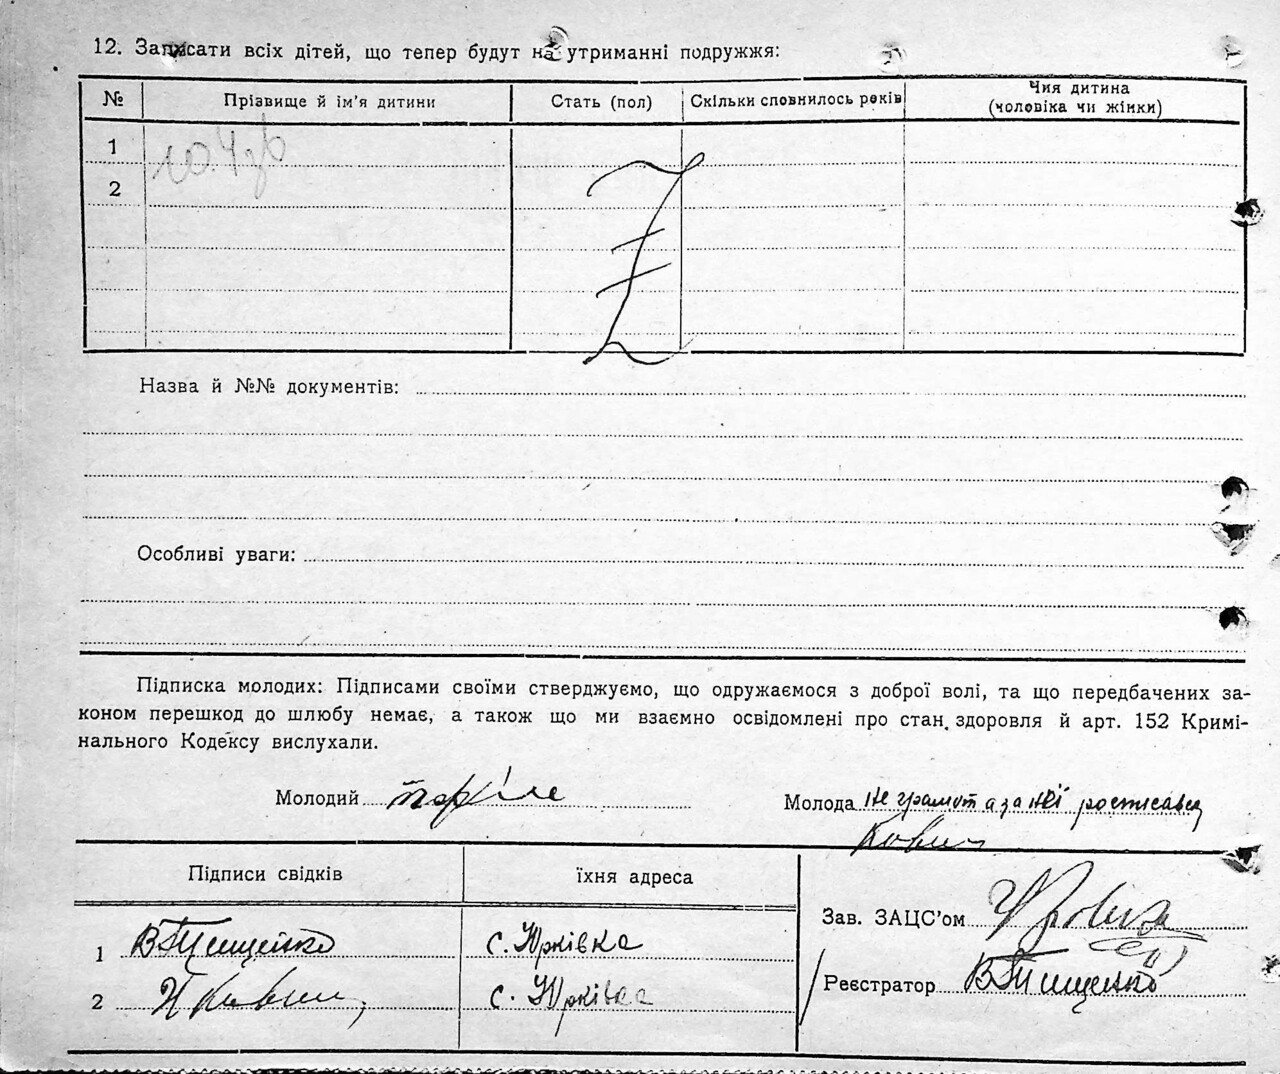 12. Записати всіх дітей, що тепер будут на утриманні подружжя:
№ Прізвище й ім'я дитини Стать (пол) Скільки сповнилось років Чия дитина
(чоловіка чи жінки)
1
2
Z
Назва й №№ документів:
Особливі уваги:
Підписка молодих: Підписами своїми стверджуємо, що одружаємося з доброї волі, та що передбачених за-
коном перешкод до шлюбу немає, а також що ми взаємно освідомлені про стан здоровля й арт. 152 Кримі-
нального Кодексу вислухали.
Молодий
Молода не грамот а за неї
Підписи свідків їхня адреса
Зав. ЗАЦС'ом
1 В Тищенко с. Юрківка
Реєстратор В Тищенко
2 с. Юрківка